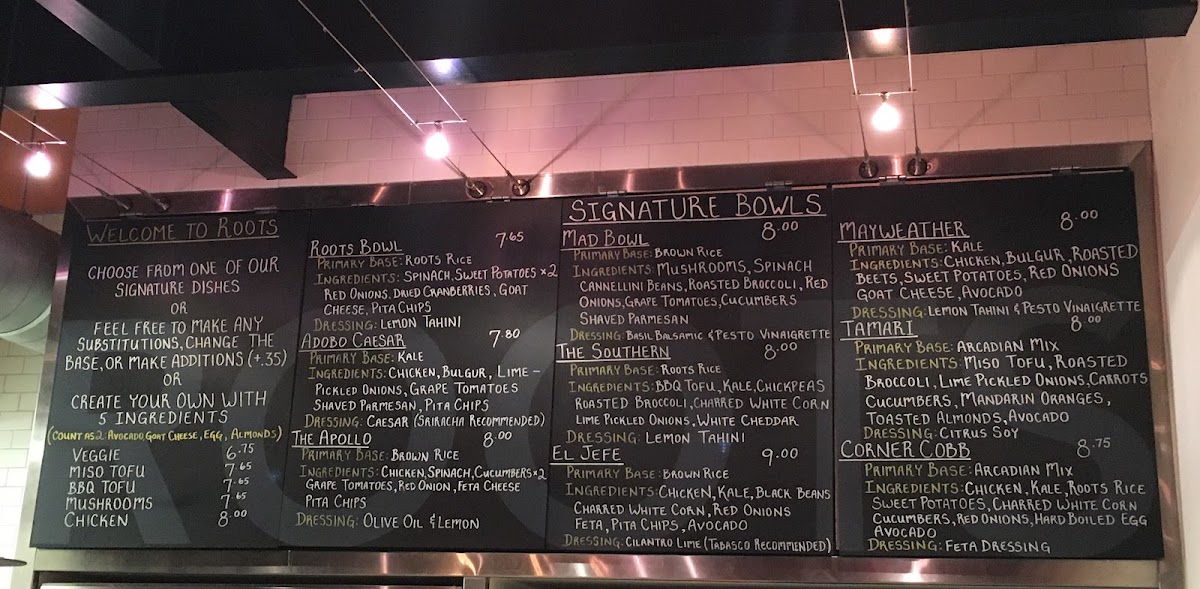 WELCOME TO ROOTS
CHOOSE FROM ONE OF OUR
SIGNATURE DISHES
OR
FEEL FREE TO MAKE ANY
SUBSTITUTIONS, CHANGE THE
BASE, OR MAKE ADDITIONS (+.35)
OR
CREATE YOUR OWN WITH
5 INGREDIENTS
(COUNT AS 2: AVOCADO, GOAT CHEESE, EGG, ALMONDS)
VEGGIE 6.75
MISO TOFU 7.65
BBQ TOFU 7.65
MUSHROOMS 7.65
CHICKEN 8.00
ROOTS BOWL 7.65
PRIMARY BASE: ROOTS RICE
INGREDIENTS: SPINACH, SWEET POTATOES ×2
RED ONIONS, DRIED CRANBERRIES, GOAT
CHEESE, PITA CHIPS
DRESSING: LEMON TAHINI
ADOBO CAESAR 7.80
PRIMARY BASE: KALE
INGREDIENTS: CHICKEN, BULGUR, LIME-
PICKLED ONIONS, GRAPE TOMATOES
SHAVED PARMESAN, PITA CHIPS
DRESSING: CAESAR (SRIRACHA RECOMMENDED)
THE APOLLO 8.00
PRIMARY BASE: BROWN RICE
INGREDIENTS: CHICKEN, SPINACH, CUCUMBERS ×2
GRAPE TOMATOES, RED ONION, FETA CHEESE
PITA CHIPS
DRESSING: OLIVE OIL & LEMON
SIGNATURE BOWLS
MAD BOWL 8.00
PRIMARY BASE: BROWN RICE
INGREDIENTS: MUSHROOMS, SPINACH
CANNELLINI BEANS, ROASTED BROCCOLI, RED
ONIONS, GRAPE TOMATOES, CUCUMBERS
SHAVED PARMESAN
DRESSING: BASIL BALSAMIC & PESTO VINAIGRETTE
THE SOUTHERN 8.00
PRIMARY BASE: ROOTS RICE
INGREDIENTS: BBQ TOFU, KALE, CHICKPEAS
ROASTED BROCCOLI, CHARRED WHITE CORN
LIME PICKLED ONIONS, WHITE CHEDDAR
DRESSING: LEMON TAHINI
EL JEFE 9.00
PRIMARY BASE: BROWN RICE
INGREDIENTS: CHICKEN, KALE, BLACK BEANS
CHARRED WHITE CORN, RED ONIONS
FETA, PITA CHIPS, AVOCADO
DRESSING: CILANTRO LIME (TABASCO RECOMMENDED)
MAYWEATHER 8.00
PRIMARY BASE: KALE
INGREDIENTS: CHICKEN, BULGUR, ROASTED
BEETS, SWEET POTATOES, RED ONIONS
GOAT CHEESE, AVOCADO
DRESSING: LEMON TAHINI & PESTO VINAIGRETTE
TAMARI 8.00
PRIMARY BASE: ARCADIAN MIX
INGREDIENTS: MISO TOFU, ROASTED
BROCCOLI, LIME PICKLED ONIONS, CARROTS
CUCUMBERS, MANDARIN ORANGES,
TOASTED ALMONDS, AVOCADO
DRESSING: CITRUS SOY
CORNER COBB 8.75
PRIMARY BASE: ARCADIAN MIX
INGREDIENTS: CHICKEN, KALE, ROOTS RICE
SWEET POTATOES, CHARRED WHITE CORN
CUCUMBERS, RED ONIONS, HARD BOILED EGG
AVOCADO
DRESSING: FETA DRESSING
ROOTS